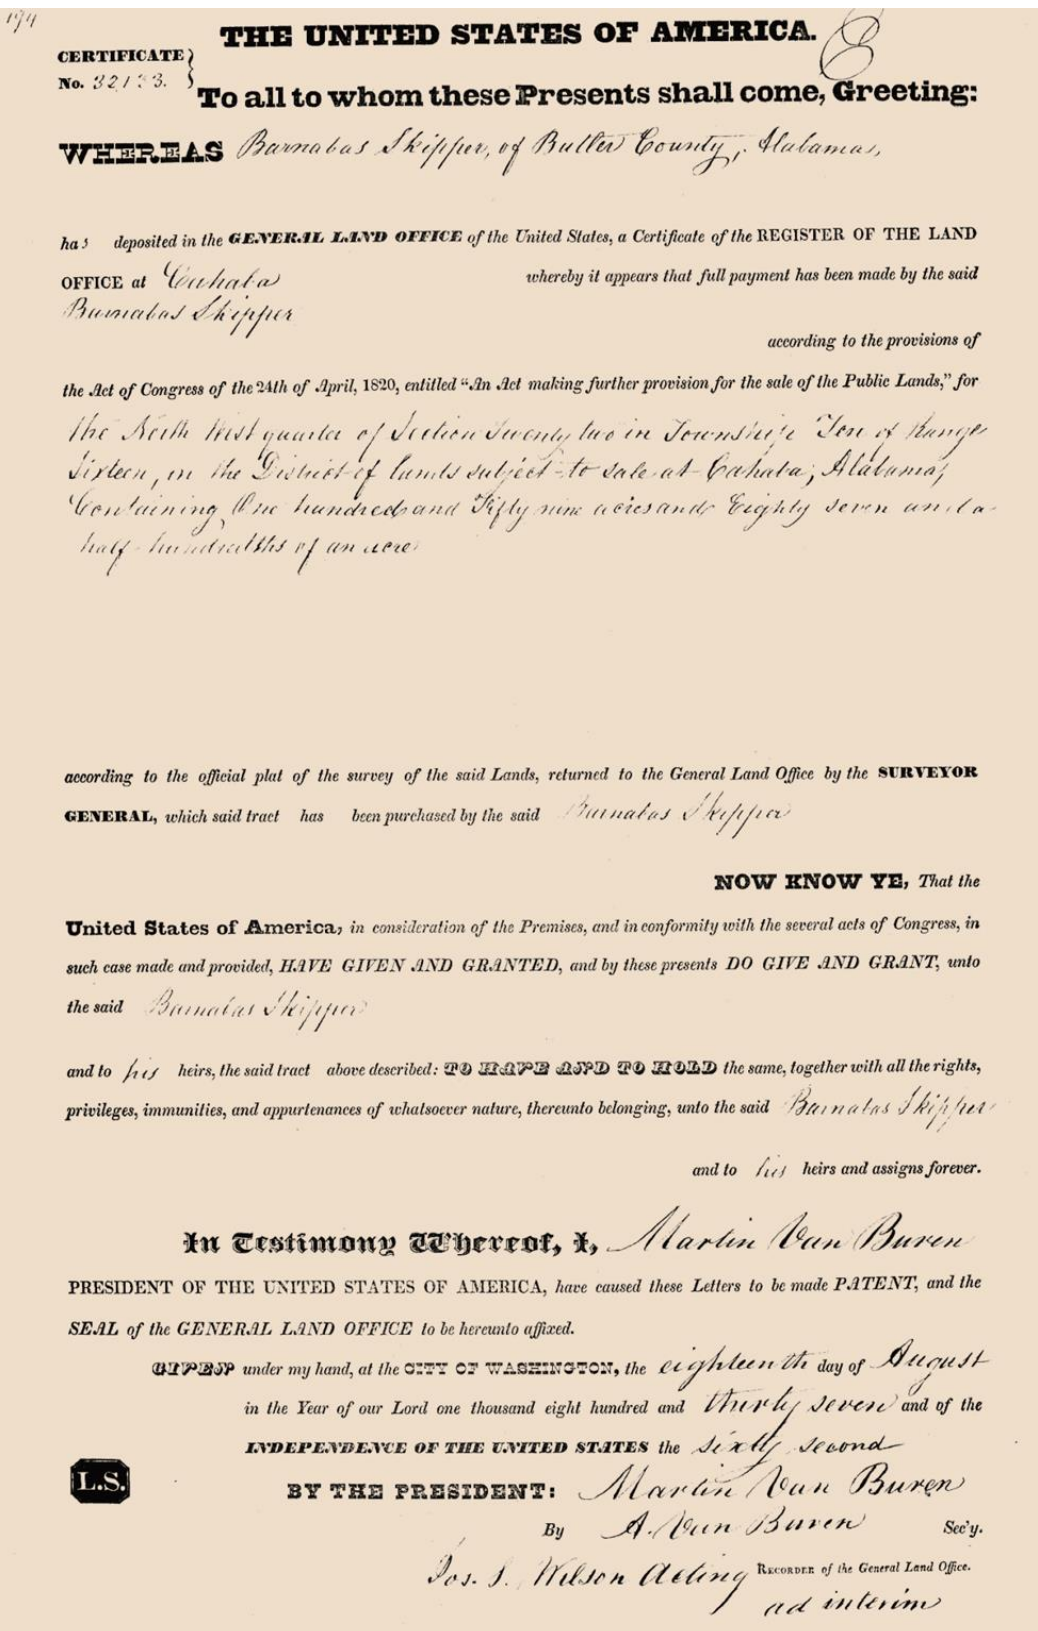 174
THE UNITED STATES OF AMERICA.
CERTIFICATE
No. 32133.
To all to whom these Presents shall come, Greeting:
WHEREAS Barnabas Skipper, of Butler County, Alabama,
has deposited in the GENERAL LAND OFFICE of the United States, a Certificate of the REGISTER OF THE LAND
OFFICE at Cahaba whereby it appears that full payment has been made by the said
Barnabas Skipper
according to the provisions of
the Act of Congress of the 24th of April, 1820, entitled “An Act making further provision for the sale of the Public Lands,” for
the North West quarter of Section Twenty two in Township Ten of Range
Sixteen, in the District of lands subject to sale at Cahaba, Alabama,
Containing One hundred and Fifty nine acres and Eighty seven and a
half hundredths of an acre
according to the official plat of the survey of the said Lands, returned to the General Land Office by the SURVEYOR
GENERAL, which said tract has been purchased by the said Barnabas Skipper
NOW KNOW YE, That the
United States of America, in consideration of the Premises, and in conformity with the several acts of Congress, in
such case made and provided, HAVE GIVEN AND GRANTED, and by these presents DO GIVE AND GRANT, unto
the said Barnabas Skipper
and to his heirs, the said tract above described: TO HAVE AND TO HOLD the same, together with all the rights,
privileges, immunities, and appurtenances of whatsoever nature, thereunto belonging, unto the said Barnabas Skipper
and to his heirs and assigns forever.
In Testimony Whereof, I, Martin Van Buren
PRESIDENT OF THE UNITED STATES OF AMERICA, have caused these Letters to be made PATENT, and the
SEAL of the GENERAL LAND OFFICE to be hereunto affixed.
GIVEN under my hand, at the CITY OF WASHINGTON, the eighteenth day of August
in the Year of our Lord one thousand eight hundred and thirty seven and of the
INDEPENDENCE OF THE UNITED STATES the sixty second
L.S.
BY THE PRESIDENT: Martin Van Buren
By A. Van Buren Sec'y.
Jos. S. Wilson Acting RECORDER of the General Land Office.
ad interim